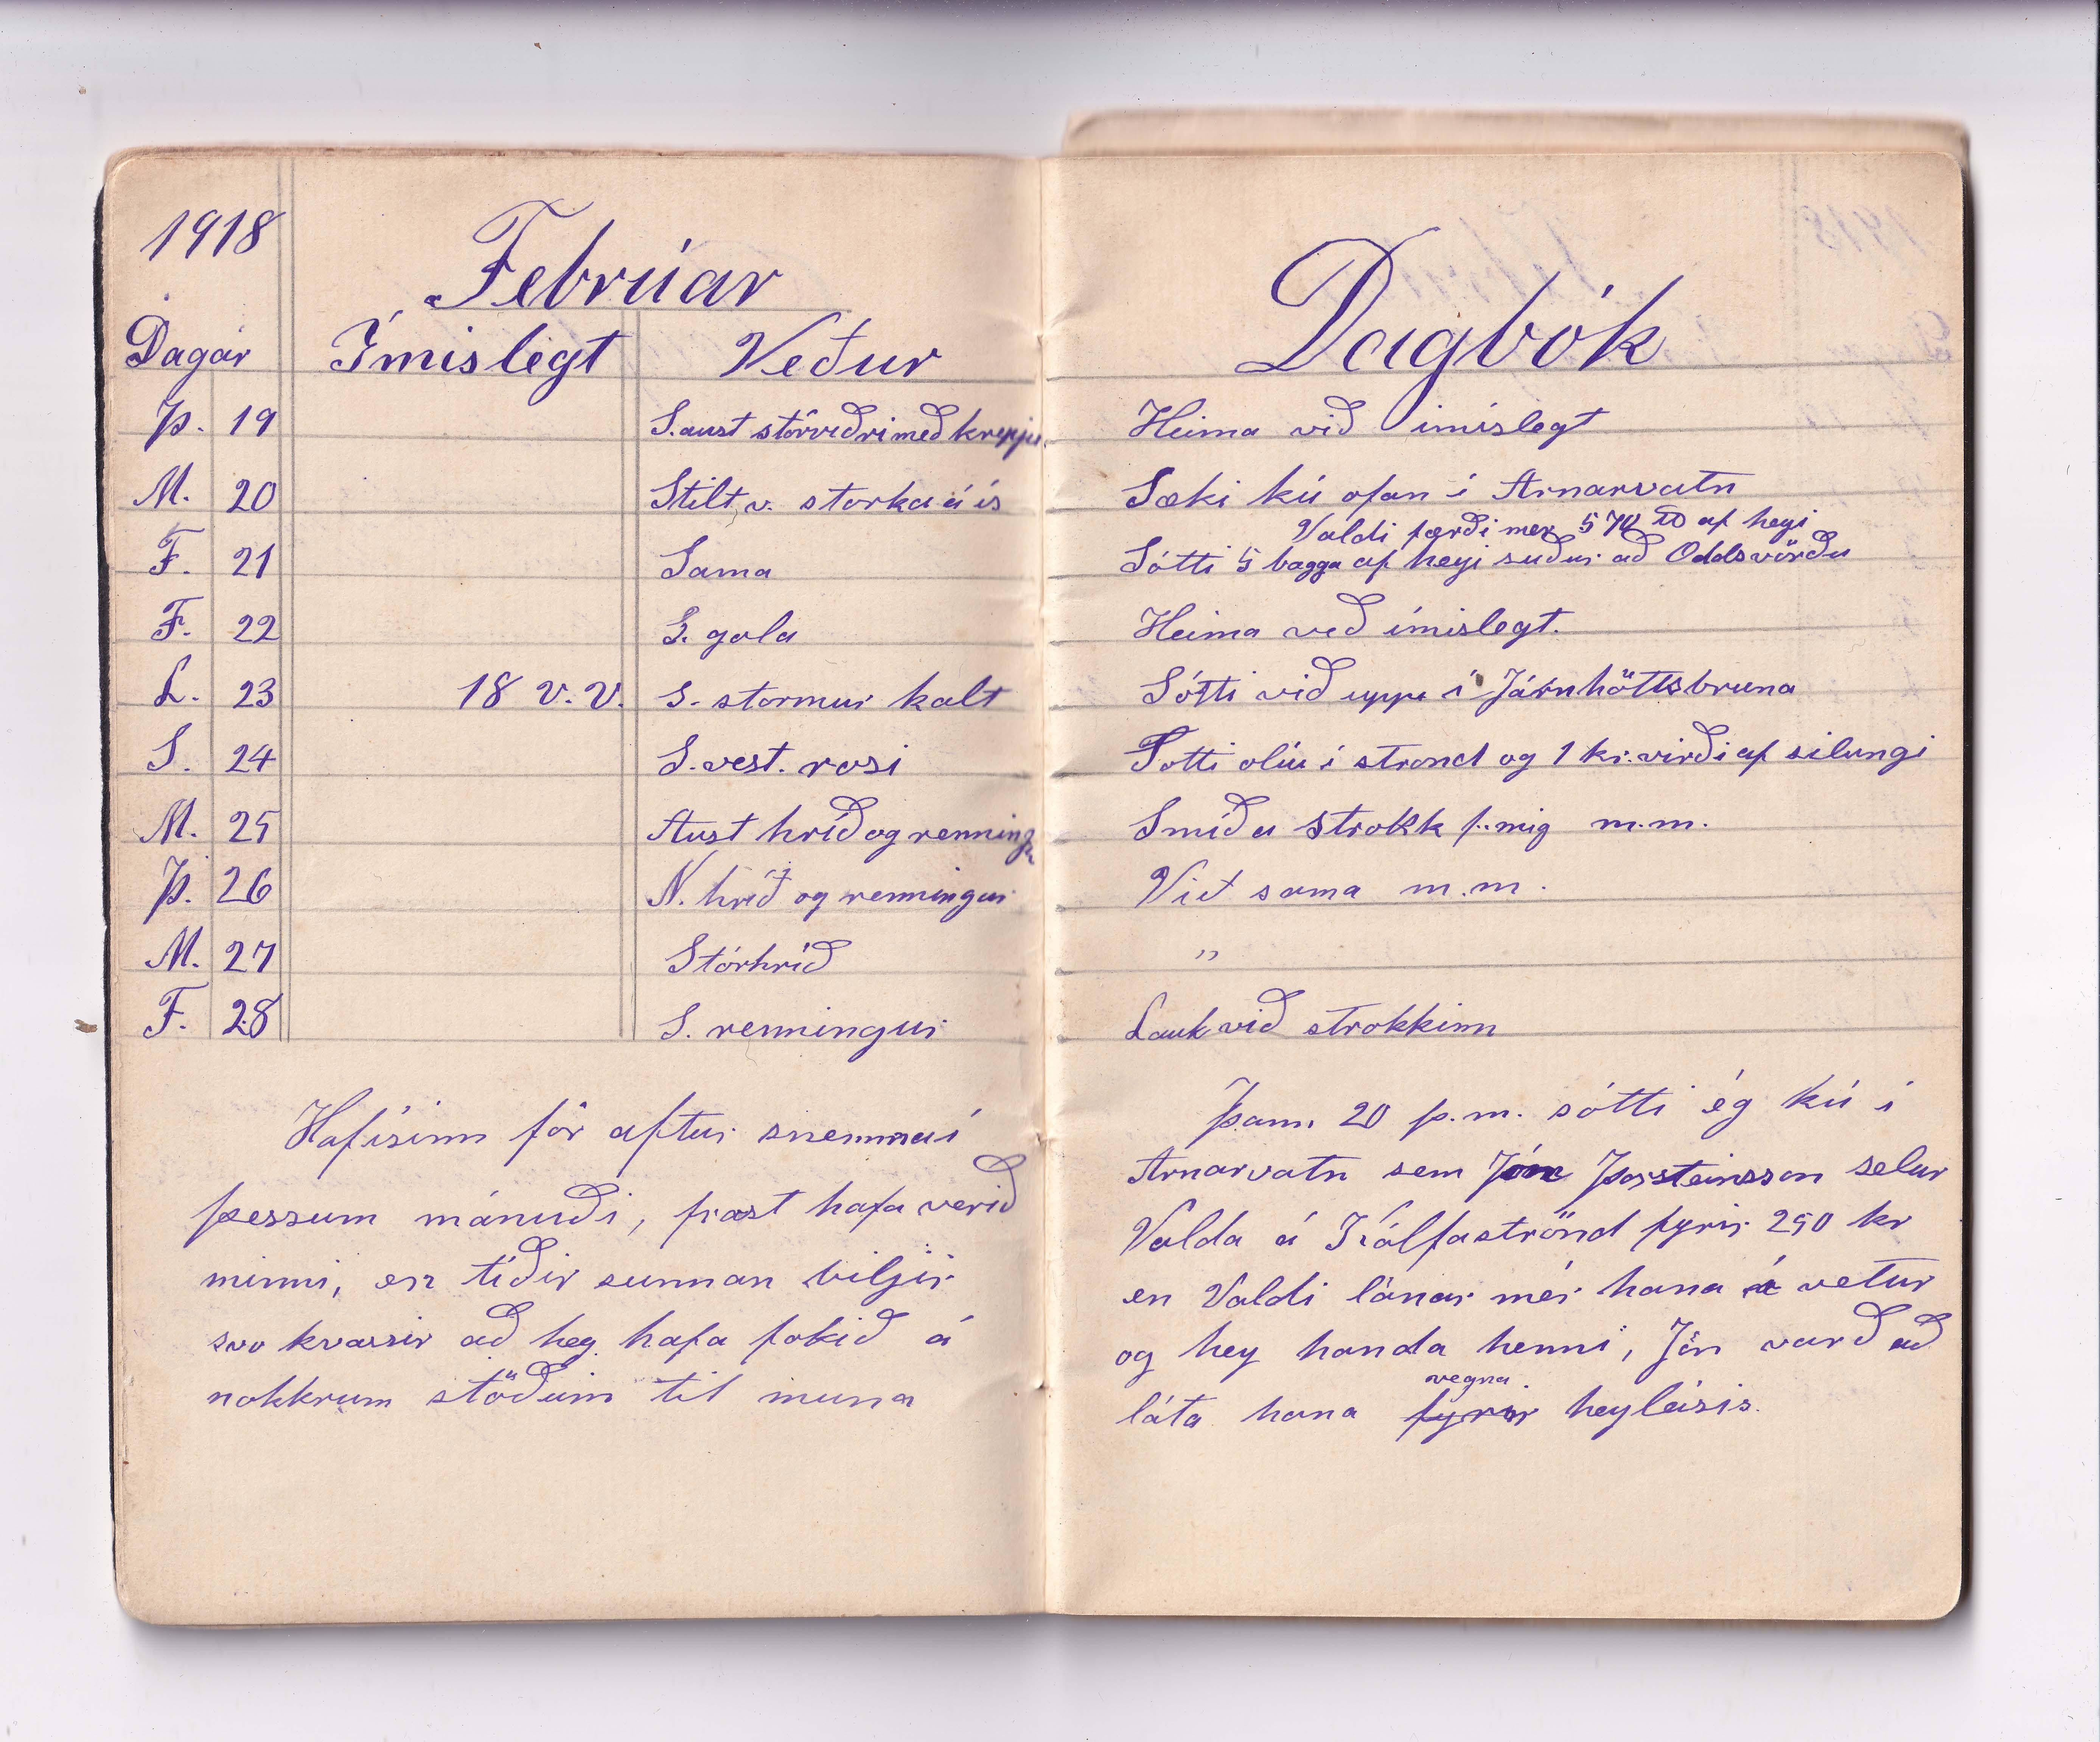 1918
Febrúar
Dagar Ímislegt Veður
Þ. 19 S.aust stórviðri með krepju
M. 20 Stilt v. storka á ís
F. 21 Sama
F. 22 S. gola
L. 23 18 v.v. S. stormur kalt
S. 24 S.vest. rosi
M. 25 Aust hríð og renningr
Þ. 26 N. hríð og renningur
M. 27 Stórhríð
F. 28 S. renningur
Hafísinn fór aftur snemma í
þessum mánuði, frost hafa verið
minni, en tíðir sunnan biljir
svo kvassir að hey hafa fokið á
nokkrum stöðum til muna
Dagbók
Heima við ímislegt
Sæki kú ofan í Arnarvatn
Valdi færði mer 570 ℔ af heyi
Sótti 5 bagga af heyi suður að Oddsvörðu
Heima við ímislegt.
Sótti við uppi í Járnhöttsbruna
Sotti olíu í strond og 1 kr. virði af silungi
Smíða strokk f. mig m.m.
Við sama m.m.
"
Lauk við strokkinn
Þann 20 þ.m. sótti ég kú í
Arnarvatn sem Jón Þorsteinsson selur
Valda á Kálfaströnd fyrir 250 kr
en Valdi lánar mér hana á vetur
og hey handa henni, Jón varð að
vegna
láta hana fyrir heyleisis.